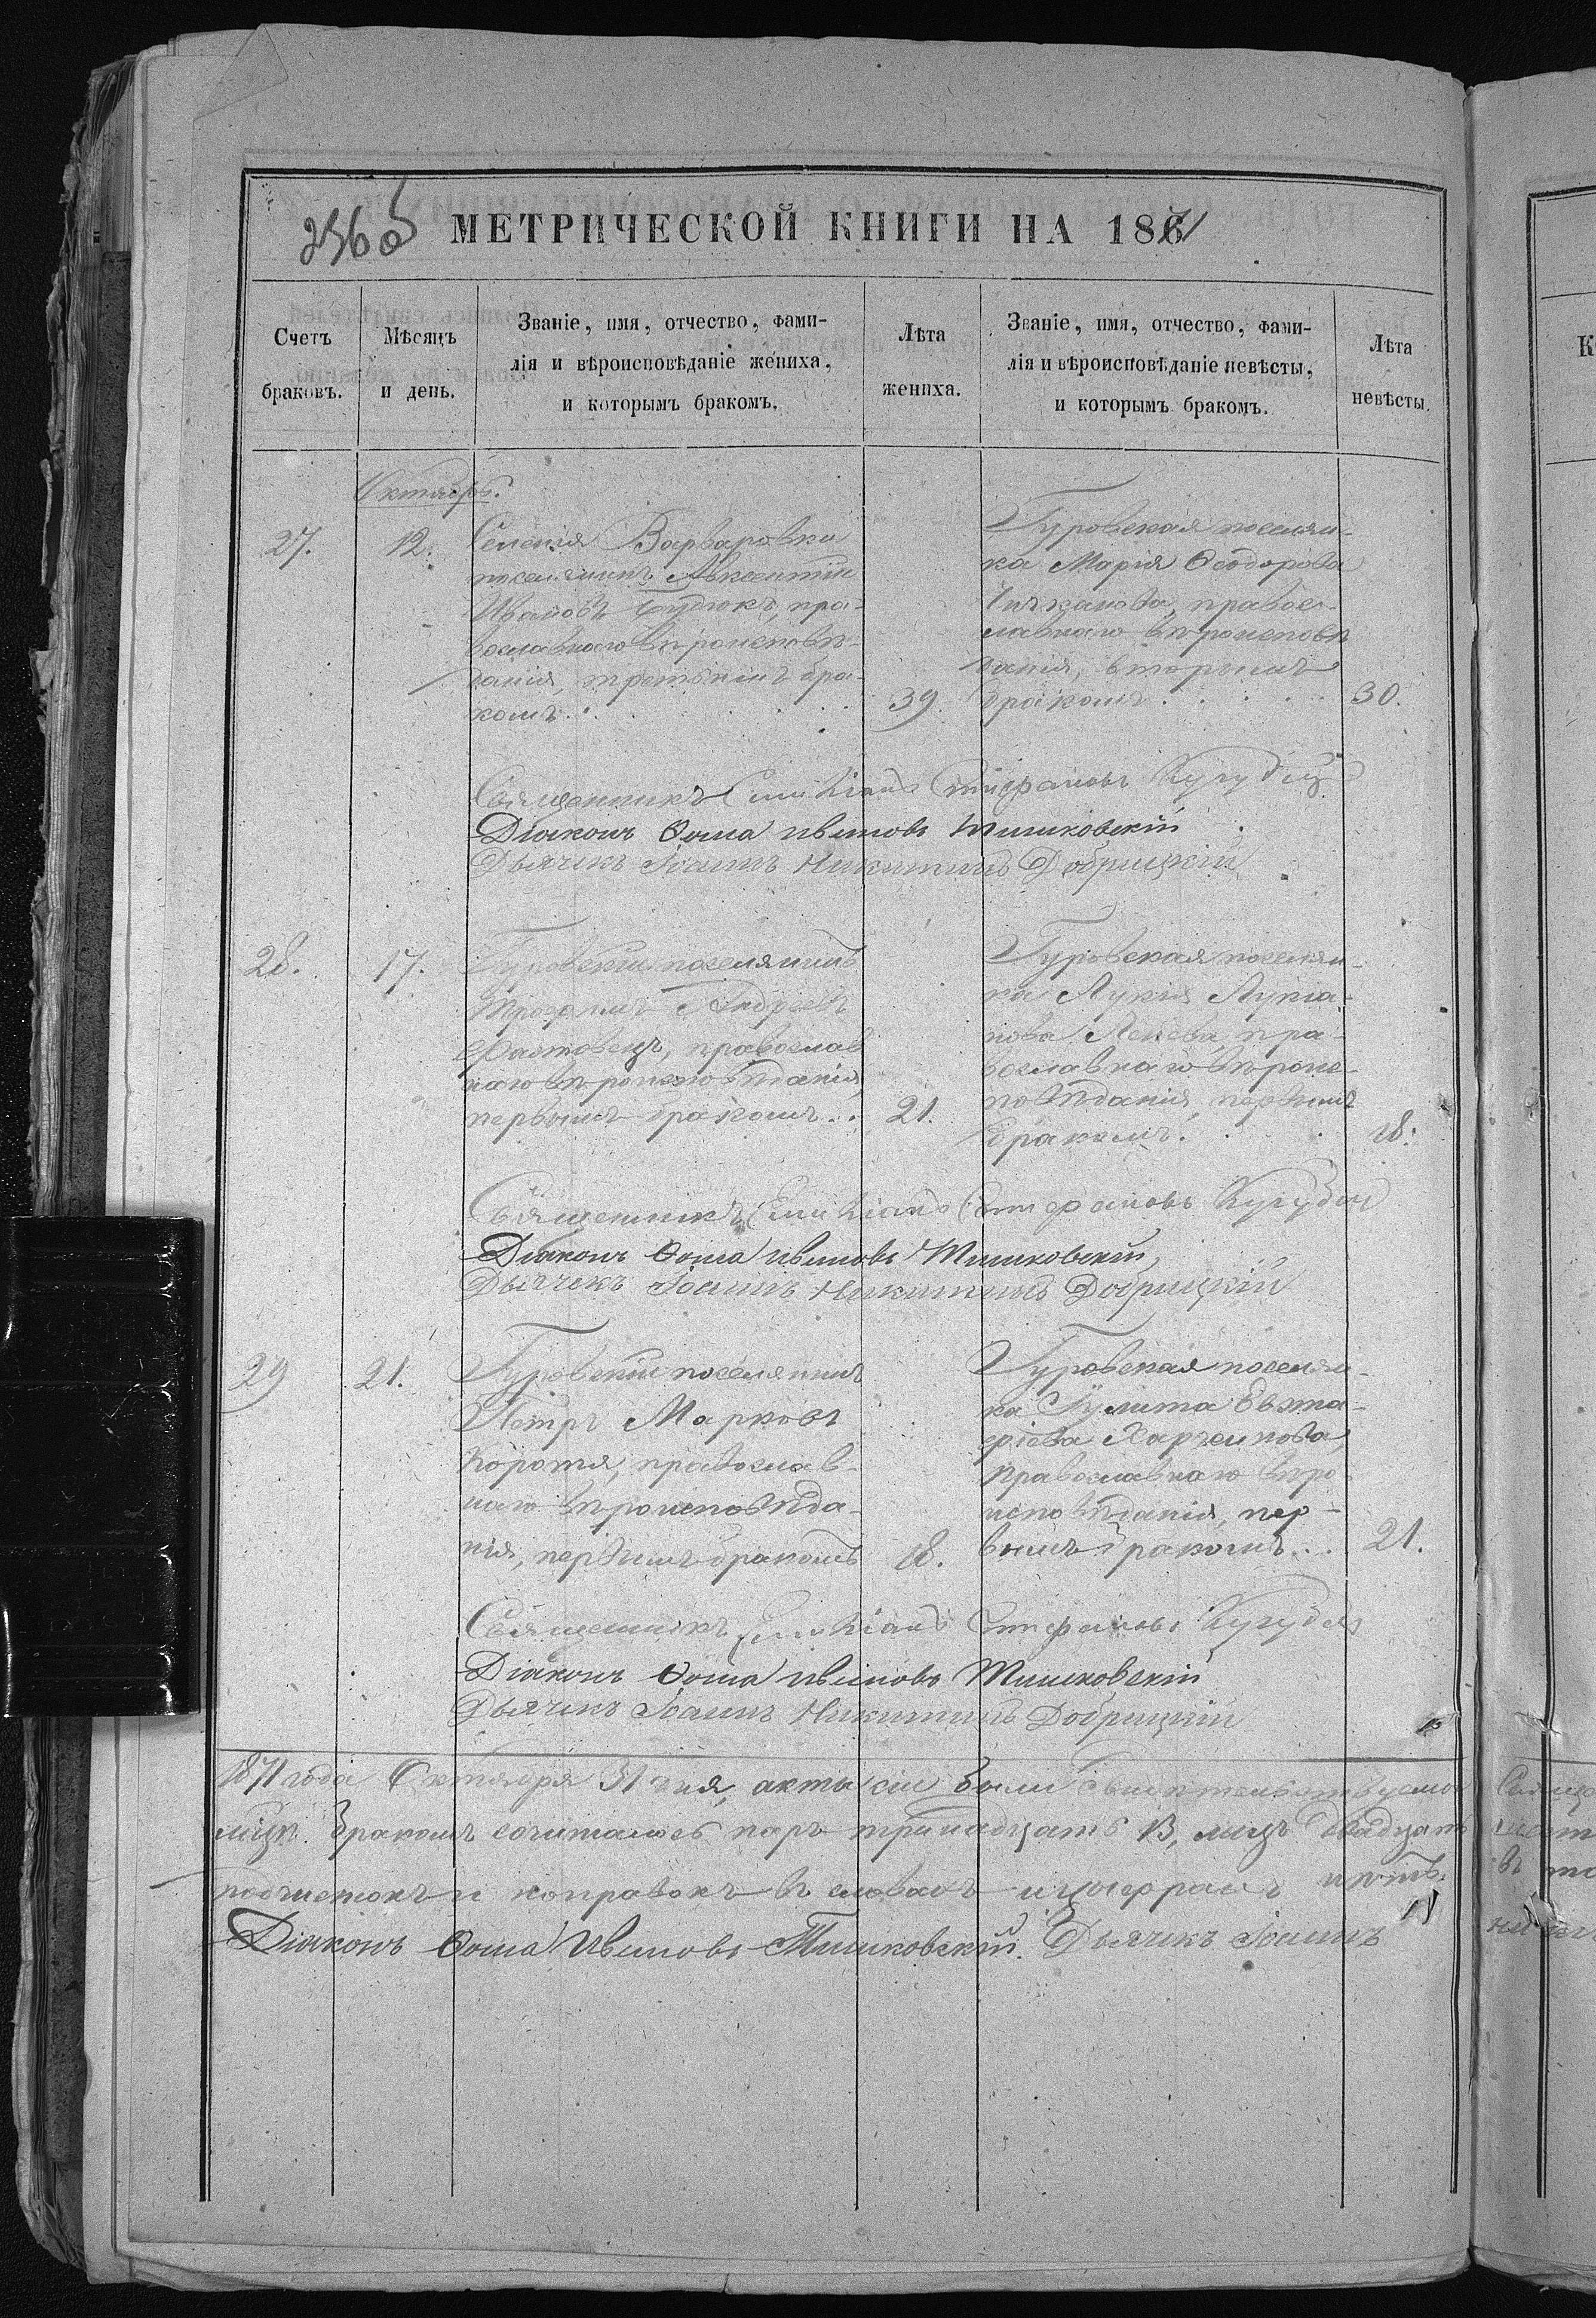 236 об
МЕТРИЧЕСКОЙ КНИГИ НА 1871
Счетъ браковъ.
Мѣсяцъ и день.
Званіе, имя, отчество, фами-
лія и вѣроисповѣданіе жениха,
и которымъ бракомъ.
Лѣта жениха.
Званіе, имя, отчество, фами-
лія и вѣроисповѣданіе невѣсты,
и которымъ бракомъ.
Лѣта невѣсты.
Октябрь.
27.
12.
Селенія Варваровки
поселянинъ Авксентій
Ивановъ Будюкъ, пра-
вославнаго вѣроисповѣ-
данія, третьимъ бра-
комъ . .
39.
Гуровская поселян-
ка Марія Ѳеодорова
правос-
лавнаго вѣроисповѣ
данія, вторымъ
бракомъ . . . .
30.
Священникъ Емиліанъ Стефановъ
Діаконъ Ѳома Ивановъ Тишковскій
Дьячекъ Іоаннъ Никитинъ Добрицкій
28.
17.
Гуровскій поселянинъ
Трофимъ Андреевъ
Фастовецъ, православ
наго вѣроисповѣданія,
первымъ бракомъ . .
21.
Гуровская поселян-
ка Лукія Лукіа-
нова пра-
вославнаго вѣроис-
повѣданія, первымъ
бракомъ . . .
18.
Священникъ Емиліанъ Стефановъ
Діаконъ Ѳома Ивановъ Тишковскій,
Дьячекъ Іоаннъ Никитинъ Добрицкій
29
21.
Гуровскій поселянинъ
Петръ Марковъ
Коротя, православ-
наго вѣроисповѣда-
нія, первымъ бракомъ
18.
Гуровская поселян-
ка Іулита Евста-
фіева
православнаго вѣро
исповѣданія, пер-
вымъ бракомъ . .
21.
Священникъ Емиліанъ Стефановъ
Діаконъ Ѳома Ивановъ Тишковскій
Дьячекъ Іоаннъ Никитинъ Добрицкій
1871 года Октября 31 дня, акты сіи были свидѣтельствуемы
бракомъ сочиталось паръ тринадцать 13, лицъ двадцать
подчистокъ и поправокъ въ словахъ и цыфрахъ нѣтъ.
Діаконъ Ѳома Ивановъ Тишковскій. Дьячекъ Іоаннъ